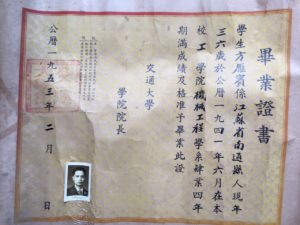 畢業證書
學生方雁賓係江蘇省南通縣人現年
三六歲於公曆一九四一年六月在本
校工學院機械工程學系肄業四年
期滿成績及格准予畢業此證
交通大學
學院院長
公曆一九五三年二月 日